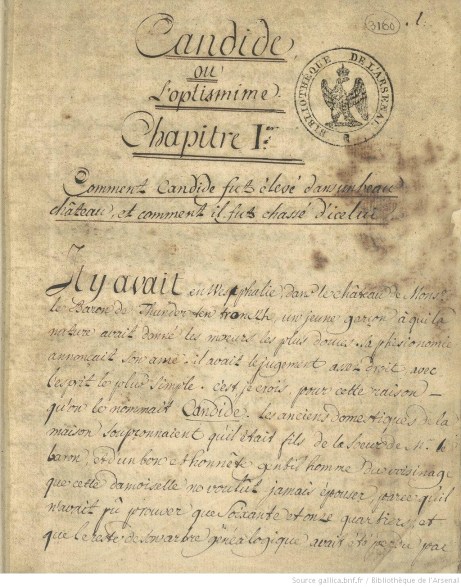 3160 1.
Candide
ou
L'optismime.
Chapitre I.er
BIBLIOTHÈQUE DE L'ARSENAL
Comment Candide fut élevé dans un beau
château, et comment il fut chassé d'icelui.
Il y avait en Westphalie, dans le château de Mons.r
le Baron de Thunder-ten-tronckh, un jeune garçon à qui la
nature avait donné les mœurs les plus douces. Sa phisionomie
annonçait son ame: il avait le jugement assez droit, avec
l'esprit le plus simple. c'est, je crois, pour cette raison —
qu'on le nommait Candide. les anciens domestiques de la
maison soupçonnaient qu'il était fils de la sœur de M. le
baron, et d'un bon et honnête gentilhomme du voisinage
que cette damoiselle ne voulut jamais épouser, parce qu'il
n'avait pû prouver que soixante et onze quartiers, et
que le reste de son arbre généalogique avait été perdu par
Source gallica.bnf.fr / Bibliothèque de l'Arsenal